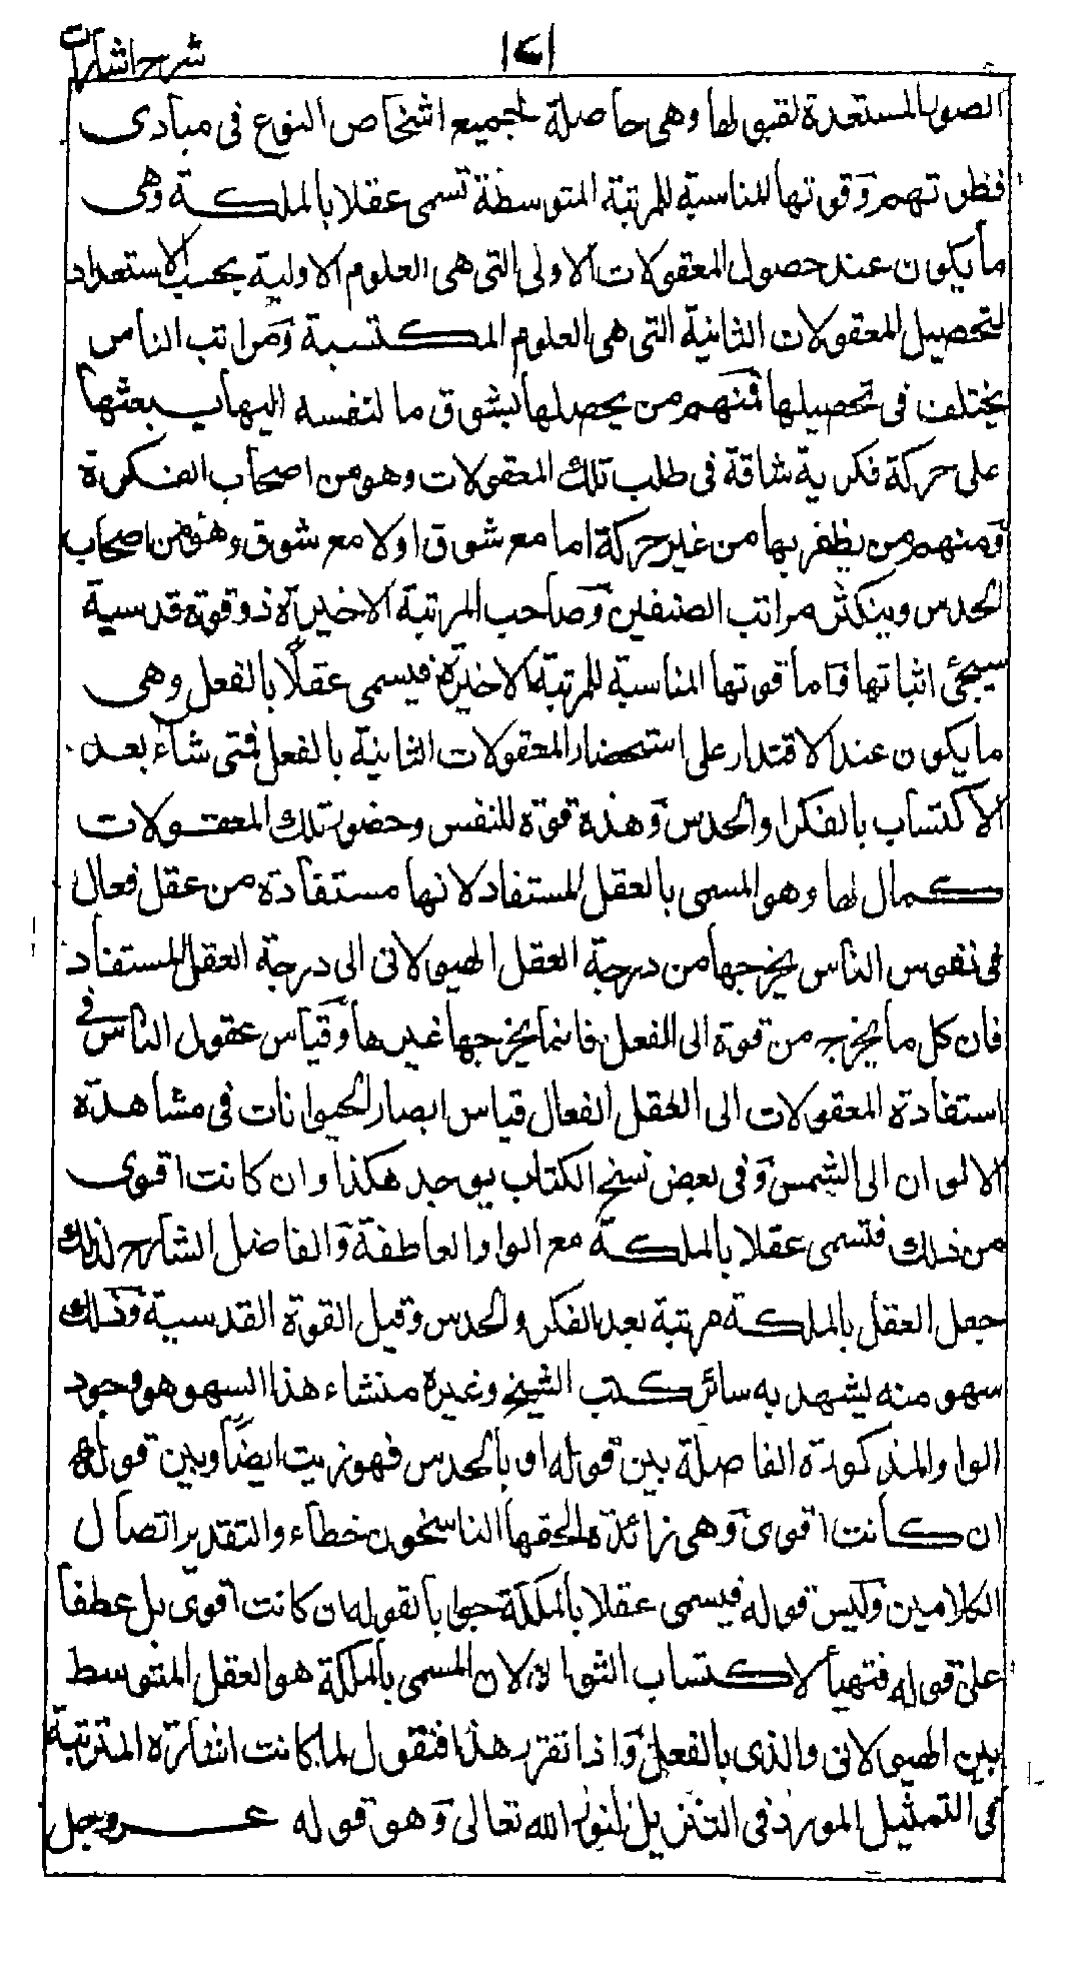 شرح اشارات
الصور المستعدة لقبولها وهى حاصلة لجميع اشخاص النوع فى مبادى
فطرتهم وقوتها المناسبة للمرتبة المتوسطة تسمى عقلا بالملكة وهى
ما يكون عند حصول المعقولات الاولى التى هى العلوم الاولية بحسب الاستعداد
لتحصيل المعقولات الثانية التى هى العلوم المكتسبة ومراتب الناس
يختلف فى تحصيلها فمنهم من يحصلها بشوق ما لنفسه اليها يبعثها
على حركة فكرية شاقة فى طلب تلك المعقولات وهو من اصحاب الفكرة
ومنهم من يظفر بها من غير حركة اما مع شوق او لا مع شوق وهو من اصحاب
الحدس ويتكثر مراتب الصنفين وصاحب المرتبة الاخيرة ذو قوة قدسية
سيجئ اثباتها فاما قوتها المناسبة للمرتبة الاخيرة فيسمى عقلا بالفعل وهى
ما يكون عند الاقتدار على استحضار المعقولات الثانية بالفعل متى شاء بعد
الاكتساب بالفكر او الحدس وهذه قوة للنفس وحضور تلك المعقولات
كمال لها وهو المسمى بالعقل المستفاد لانها مستفادة من عقل فعال
فى نفوس الناس يخرجها من درجة العقل الهيولانى الى درجة العقل المستفاد
فان كل ما يخرج من قوة الى الفعل فانما يخرجها غيرها وقياس عقول الناس فى
استفادة المعقولات الى العقل الفعال قياس ابصار الحيوانات فى مشاهدة
الالوان الى الشمس وفى بعض نسخ الكتاب يوجد هكذا وان كانت اقوى
من ذلك فتسمى عقلا بالملكة مع الواو العاطفة والفاضل الشارح لذلك
جعل العقل بالملكة مرتبة بعد الفكر والحدس وقبل القوة القدسية وذلك
سهو منه يشهد به سائر كتب الشيخ وغيره منشاء هذا السهو هو وجود
الواو المذكورة الفاصلة بين قوله او بالحدس فهو زيت ايضا وبين قوله
ان كانت اقوى وهى زائدة الحقها الناسخون خطاء والتقدير اتصال
الكلامين وليس قوله فيسمى عقلا بالملكة جوابا لقوله ان كانت اقوى بل عطفا
على قوله فتهيأ لاكتساب الثوانى لان المسمى بالملكة هو العقل المتوسط
بين الهيولانى والذى بالفعل واذا تقرر هذا فنقول لما كانت اشارة المترتبة
فى التمثيل المورد فى التنزيل لنور الله تعالى وهو قوله عز وجل